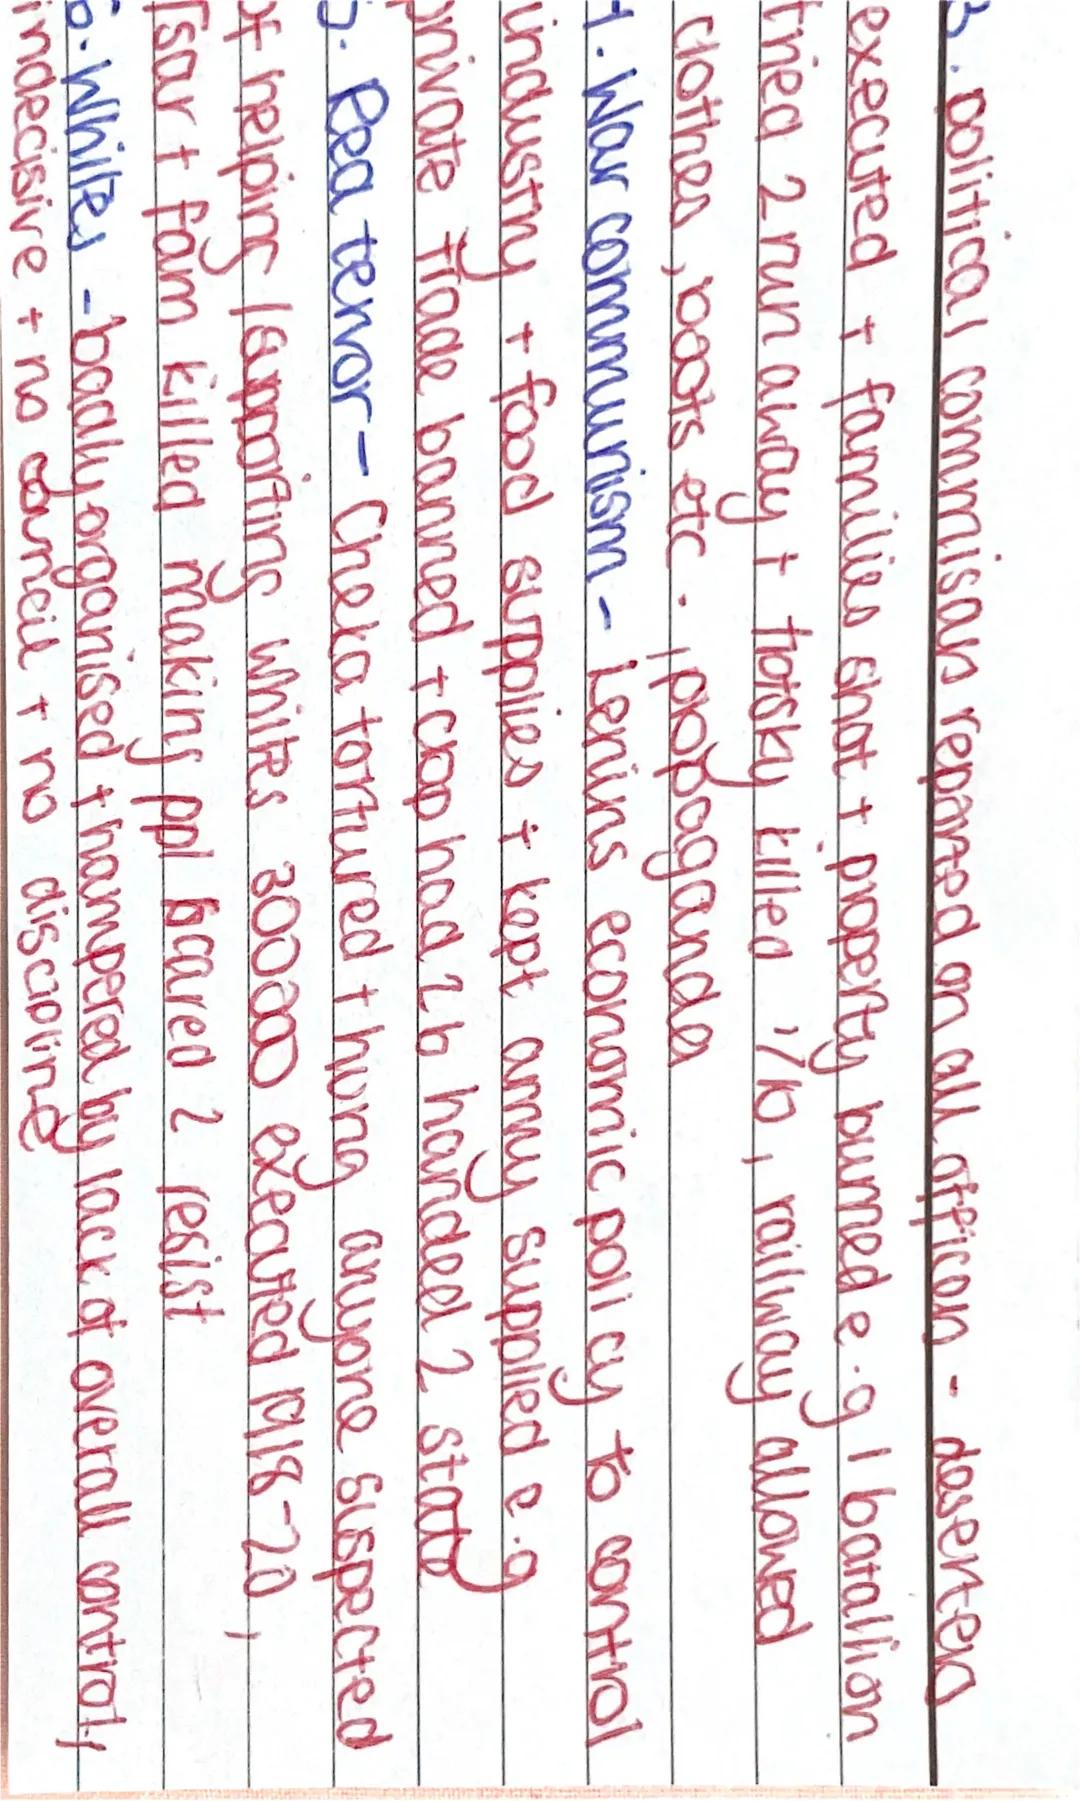 3. political commissars reported on all officers - deserters
executed + families shot + property burned e.g 1 batallion
tried 2 run away + trotsky killed 1/10, railway allowed
clothes, boots etc. , propaganda
4. War communism - Lenins economic policy to control
industry + food supplies + kept army supplied e.g
private trade banned + crop had 2 b handed 2 state
5. Red terror - Cheka tortured + hung anyone suspected
of helping / supporting whites 300000 executed 1918-20,
Tsar + fam killed making ppl scared 2 resist
6. Whites - badly organised + hampered by lack of overall control,
indecisive + no council + no discipline